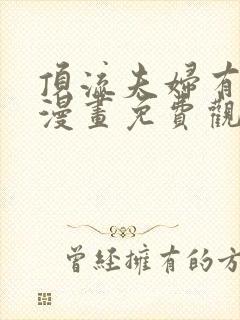 頂流夫婦有
漫畫免費觀
曾經擁有的方